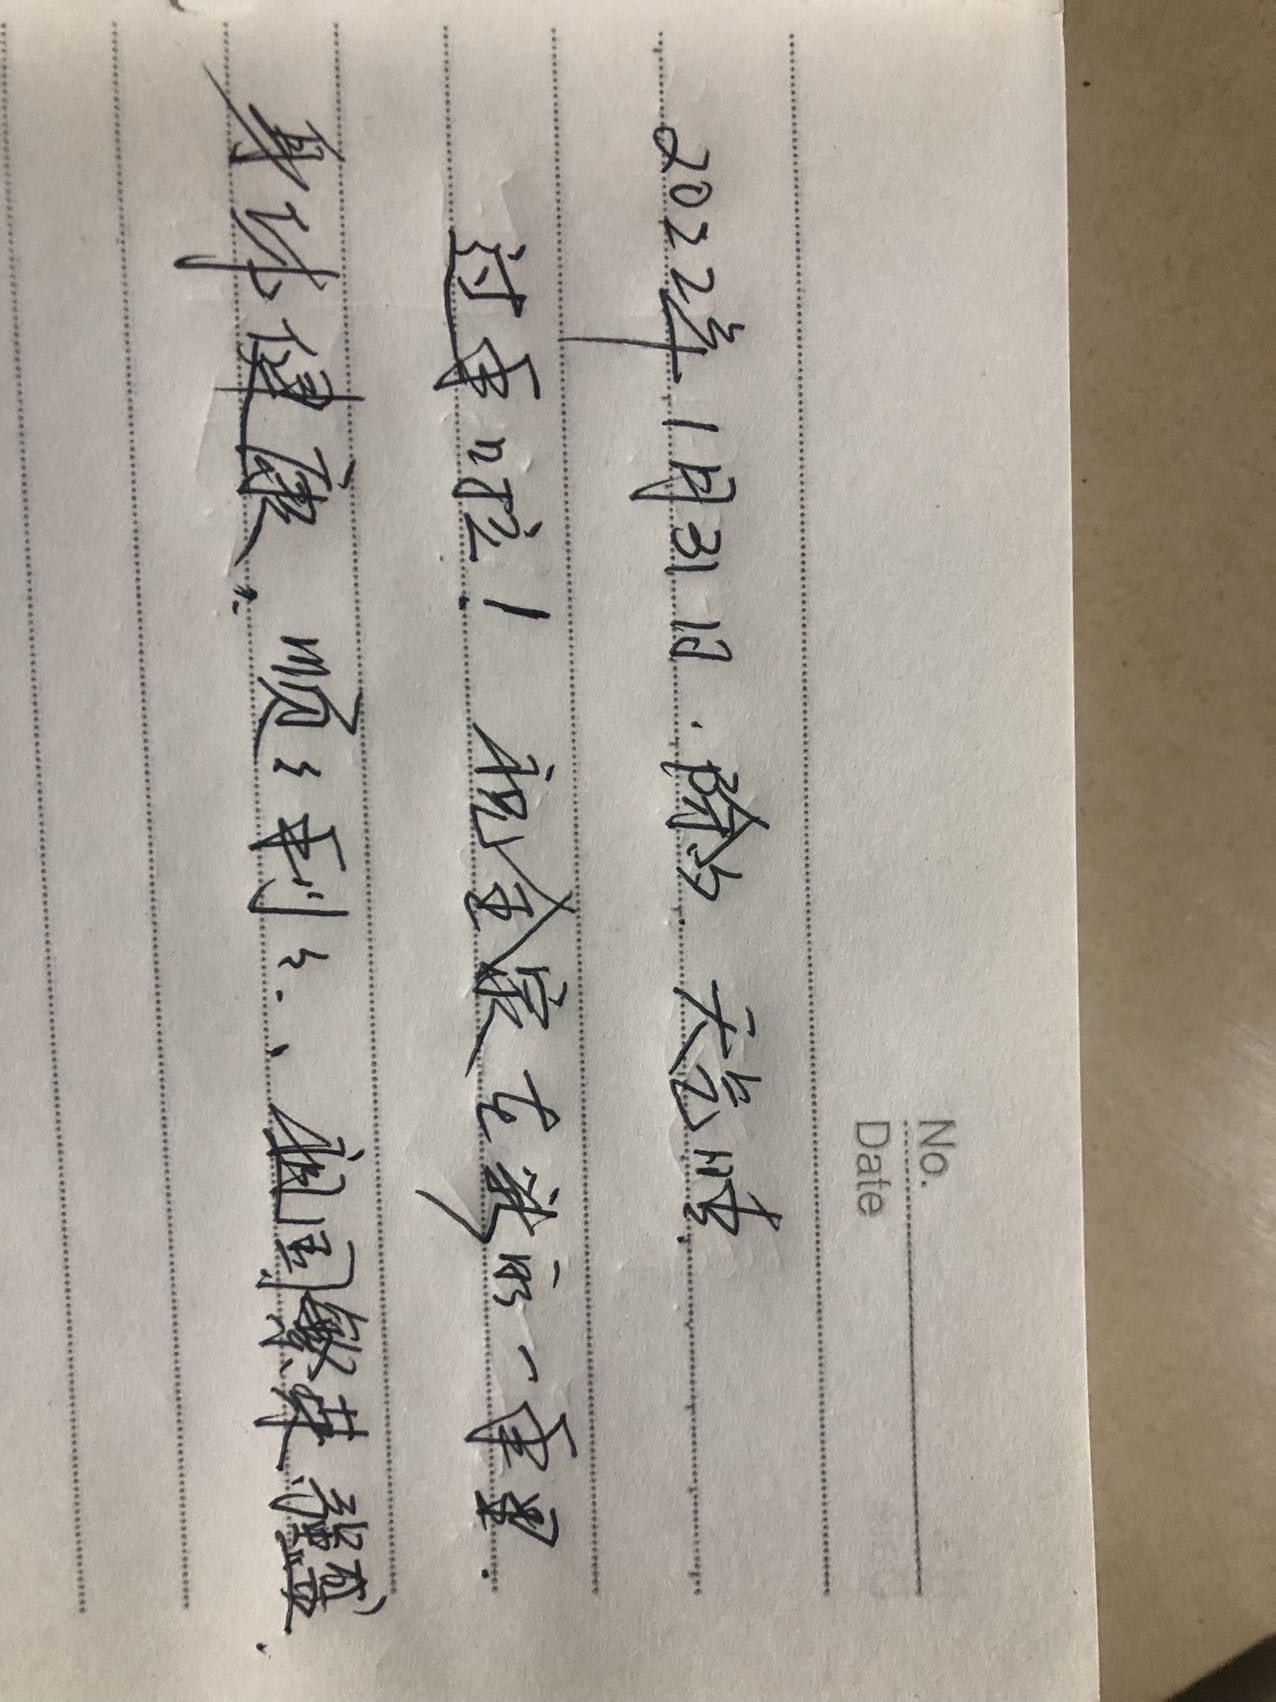 No.
Date
2022年1月31日.除夕.天气晴.
过年啦!祝全家在新的一年里.
身体健康.顺顺利利.、祖国繁荣强盛.